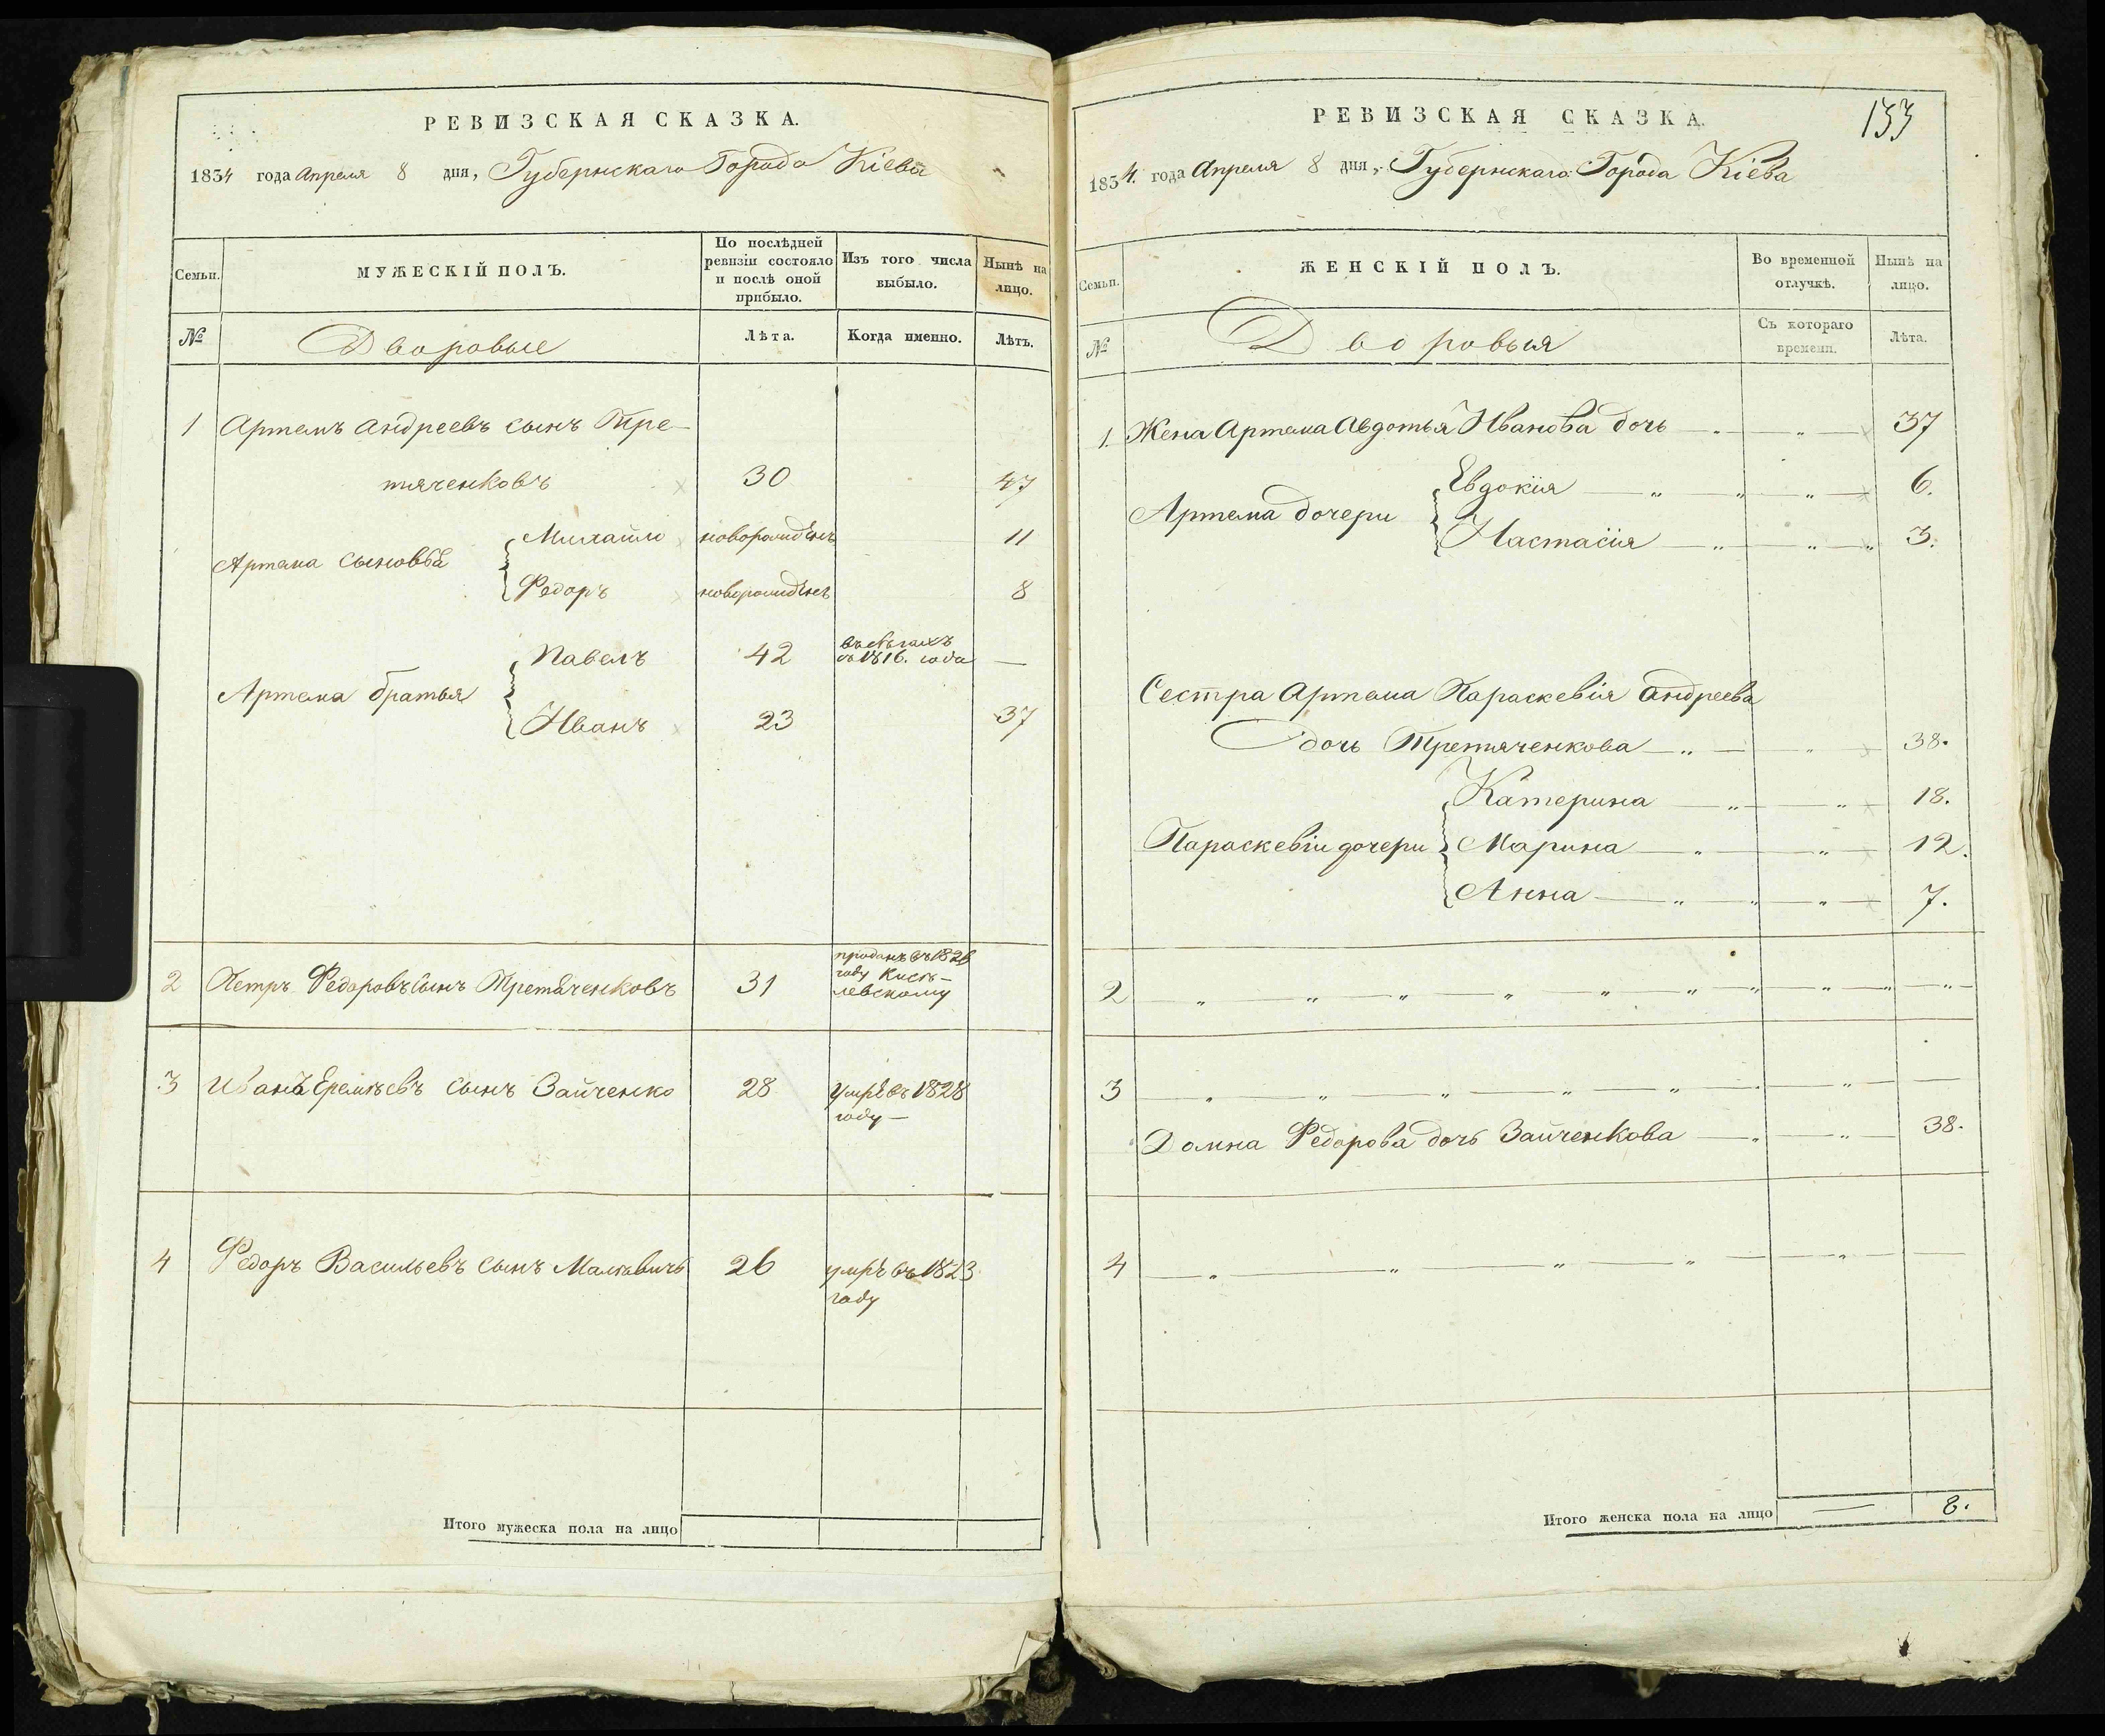 РЕВИЗСКАЯ СКАЗКА.
1834 года Апреля 8 дня, Губернскаго Города Кіева
Семьи.
МУЖЕСКІЙ ПОЛЪ.
По послѣдней ревизіи состояло и послѣ оной прибыло.
Изъ того числа выбыло.
Нынѣ на лицо.
№
Дворовые
Лѣта.
Когда именно.
Лѣтъ.
1 Артемъ Андреевъ сынъ Тре-
тяченковъ 30 47
Артема сыновья
Михайло новорожденъ 11
Федоръ новорожденъ 8
Артема братья
Павелъ 42 въ бѣгахъ съ 1816. года —
Иванъ 23 37
2 Петръ Федоровъ сынъ Третяченковъ 31 проданъ въ 1826 году
3 Иванъ Еремѣевъ сынъ Зайченко 28 умре въ 1828 году —
4 Федоръ Васильевъ сынъ 26 умре въ 1823 году
Итого мужеска пола на лицо
РЕВИЗСКАЯ СКАЗКА.
133
1834. года Апреля 8 дня, Губернскаго Города Кіева
Семьи.
ЖЕНСКІЙ ПОЛЪ.
Во временной отлучкѣ.
Нынѣ на лицо.
№
Дворовыя
Съ котораго времени.
Лѣта.
1. Жена Артема Авдотья Иванова дочь — „ — „ — 37
Артема дочери
Евдокія — „ — „ — „ — 6.
Настасія — „ — „ — „ 3.
Сестра Артема Параскевія Андреева
дочь Третяченкова — „ — „ 38.
Параскевіи дочери
Катерина — „ — „ — 18.
Марина — „ — „ — 12.
Анна — „ — „ — „ — 7.
2 — „ — „ — „ — „ — „ — „ — „ — „ — „ — „ —
3 — „ — „ — „ — „ — „ — „ — „ — —
Домна Федорова дочь Зайченкова — „ — „ — 38.
4 — „ — „ — „ — „ — „ — —
Итого женска пола на лицо — 8.